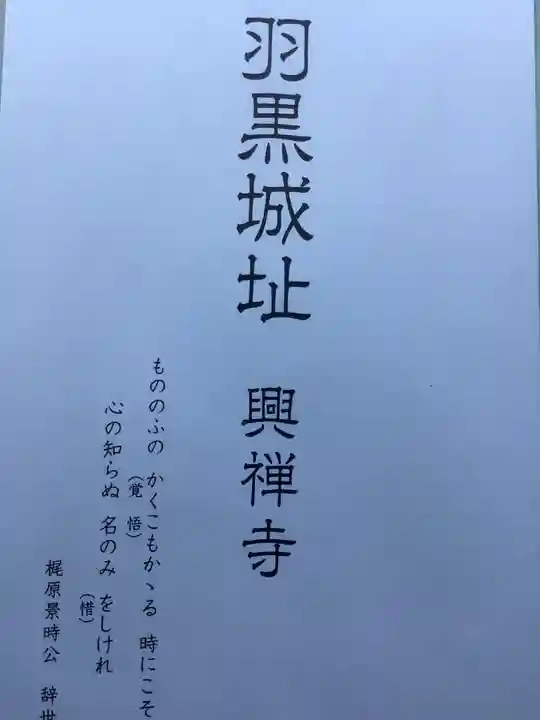 羽黒城址 興禅寺
もののふの かくこもかゝる 時にこそ
(覚 悟)
心の知らぬ 名のみ をしけれ
(惜)
梶原景時公 辞世